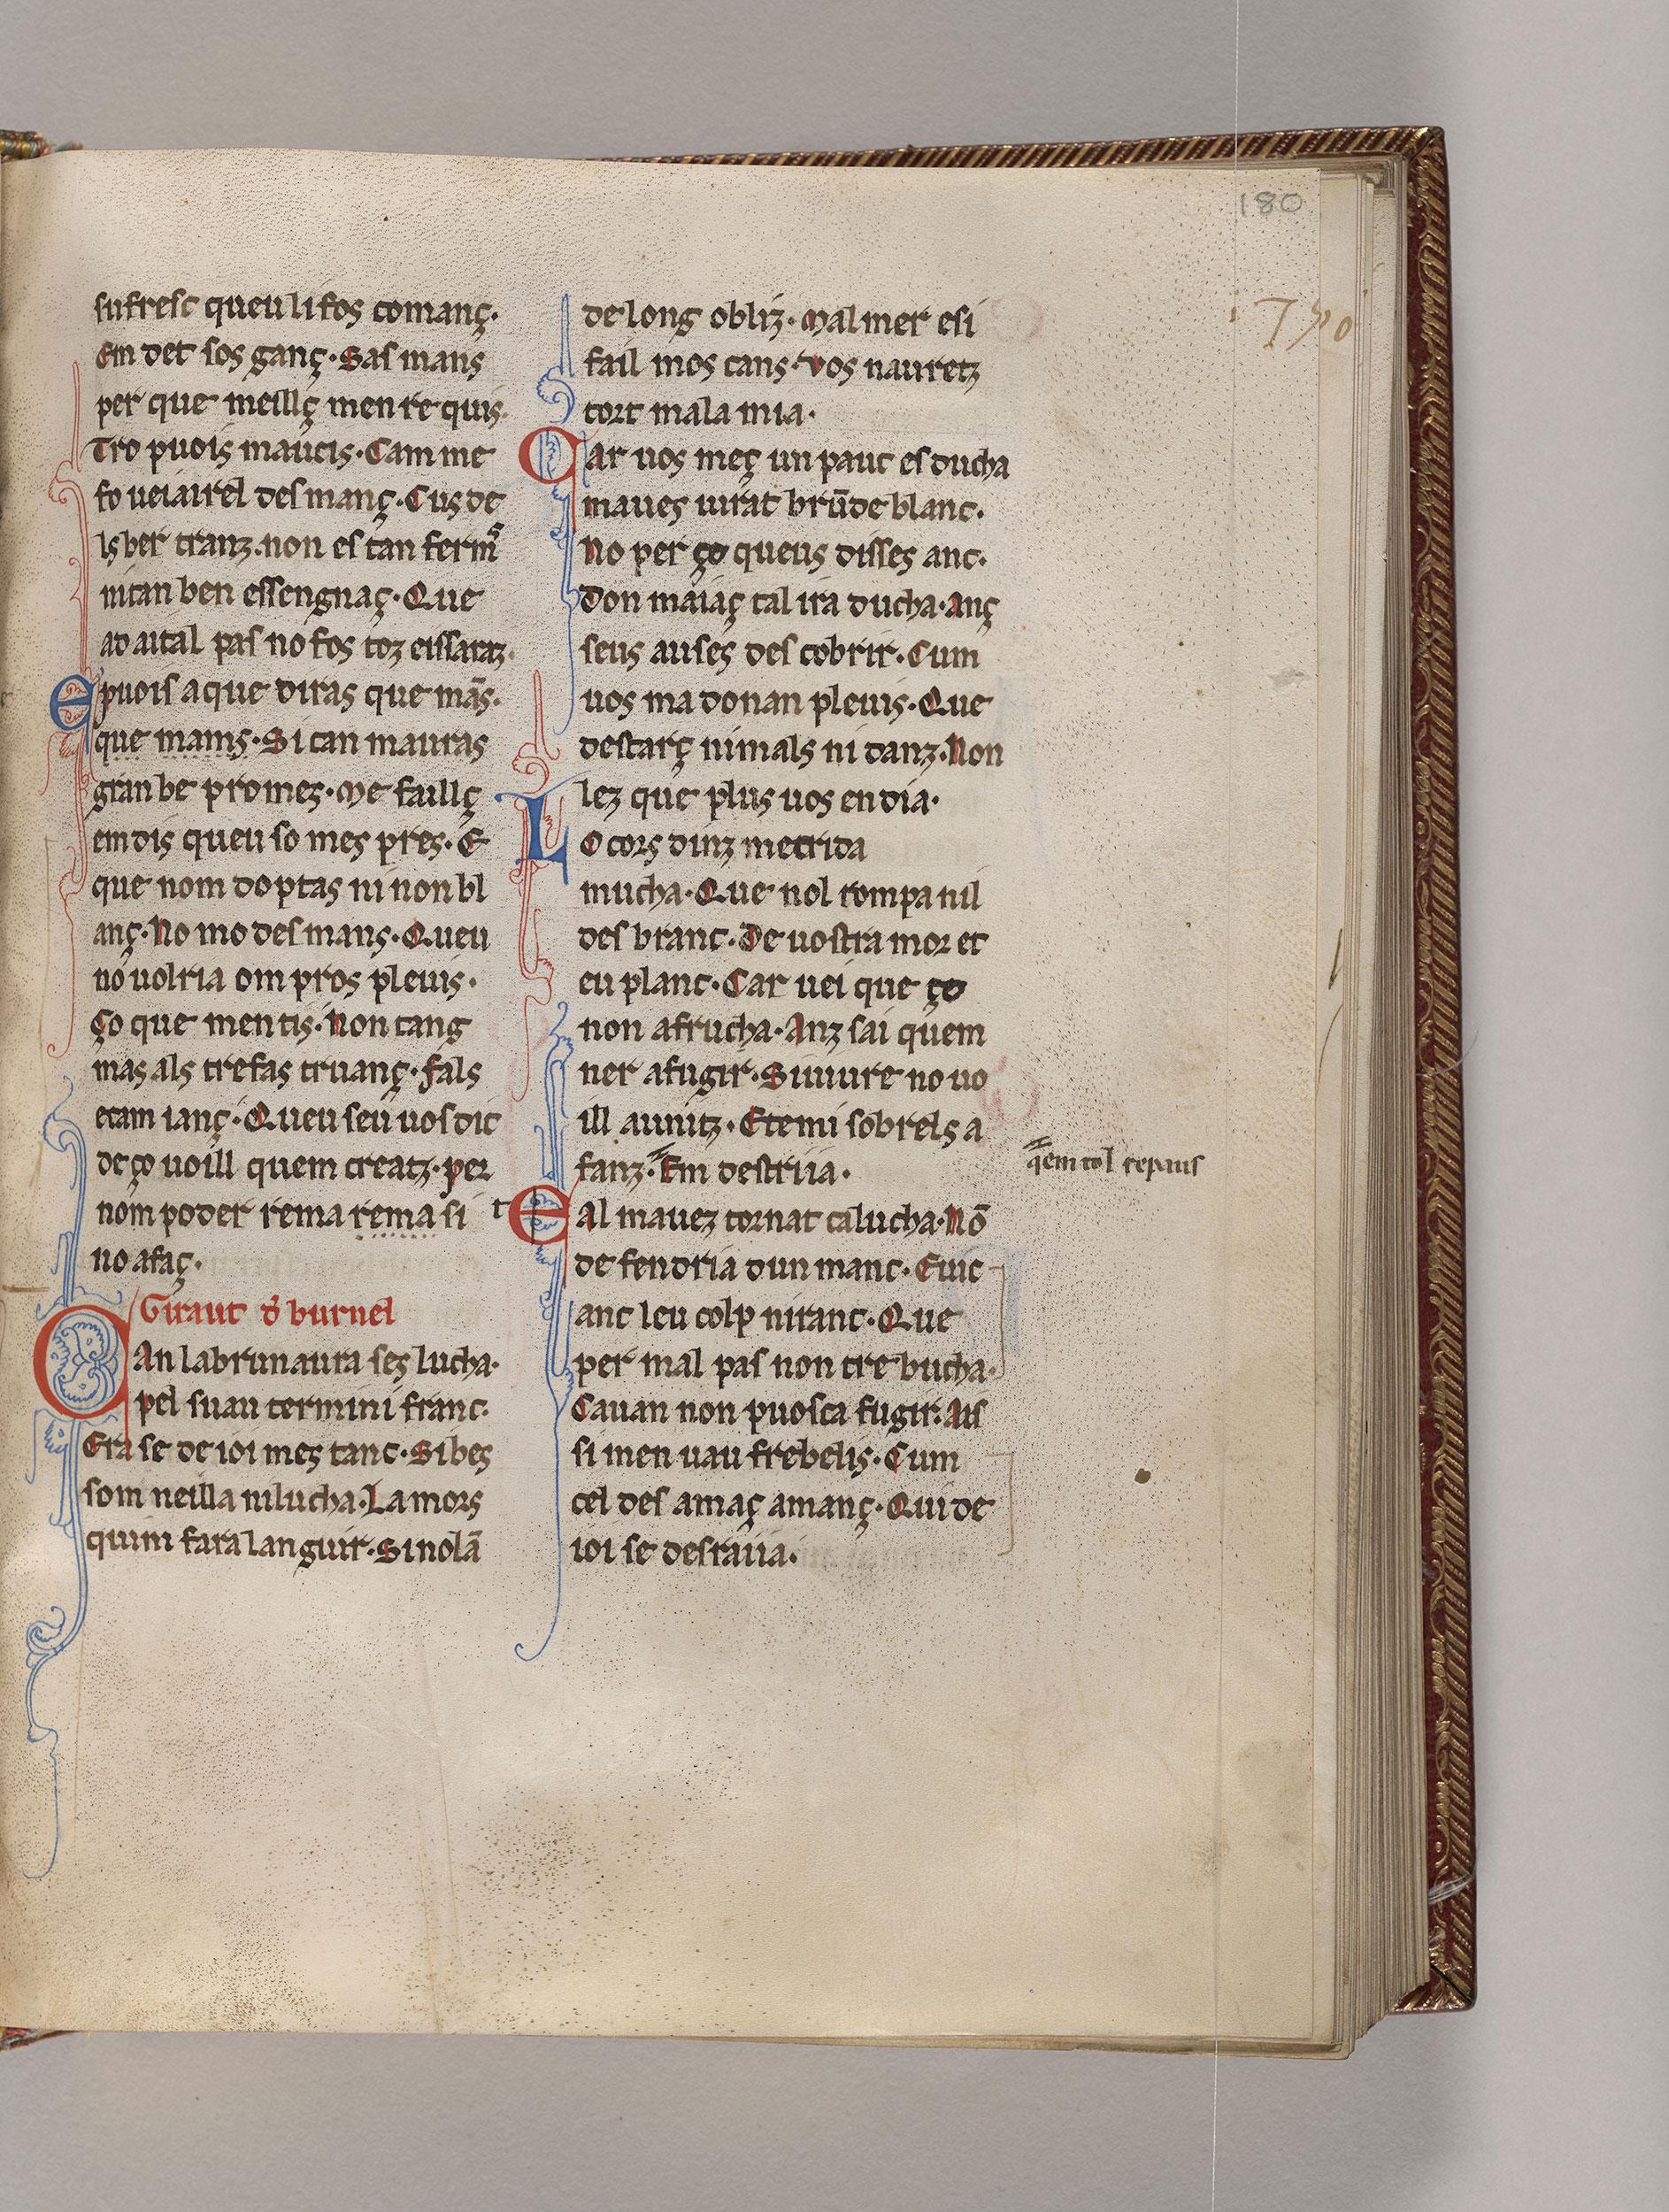 180
170
sufresc queu li fos comanç·
Em det sos ganç· Sas mans
per que meillç men re quis·
Tro puois maucis· Cam me
fo ueiairel des manç· Cus de
ls ber tranz· non es tan ferm͛
ni tan ben essengnaç· Que
ad aital pas no fos toz eissaraz·
E puois a que diras que mās·
que mams· Si tan mauras
gran be promez· Me faillç
em dis queu so mes pres· E
que nom doptas ni non bl
anç· No mo desmans· Queu
no uolria om pros pleuis·
Ço que men tis· Non tang
mas als trefas truanç· fals
etam ianç· Queu seu uos dic
de ço uoill quem creatz· per
nom poder rema rema si
no afaç·
Giraut d͛ burnel
Qan labrunaura ses lucha·
pel suau termini franc·
Era se de ioi mes tanc· Si bes
som neilla ni lucha· La mors
quim fara languir· Si nolā
de long obliz· Mal mer esi
fail mos cans· Vos nauretz
tort mala mia·
Car uos meç un pauc es ducha
maues uirat brūde blanc·
No per ço queus disses anc·
Don maiaç tal ira ducha· anç
seus auses des cobrir· Cum
uos ma donan pleuis· Que
destarç nimals ni danz· Non
lez que plus uos en dia·
Lo cors dinz me crida
mucha· Que nol rompa nil
des branc· De uostra mor et
eu planc· Car uei que ço
non afrucha· Anz sai quem
ner afugir· Si uiure no uo
ill aunitz· Et e mi sobrels a
fanz· Em destriia·
q̄em tol repaus
t
Eal mauez tornat calucha· Nō
de fendria dun manc· Euic
anc leu colp ni ranc· Que
per mal pas non tre bucha·
Cauan non puosca fugir· Ais
si men uau frebelis· Cum
cel des amaç amanç· Qui de
ioi se desraiia·